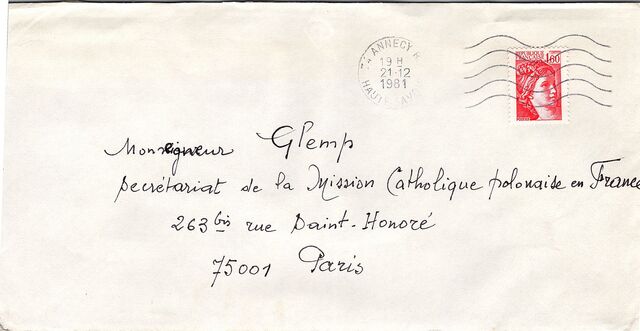 74 ANNECY R.
19 H
21-12
1981
HAUTE SAVOIE
1,60
Monseigneur Glemp
Secrétariat de la Mission Catholique polonaise en France
263 bis rue Saint-Honoré
75001 Paris